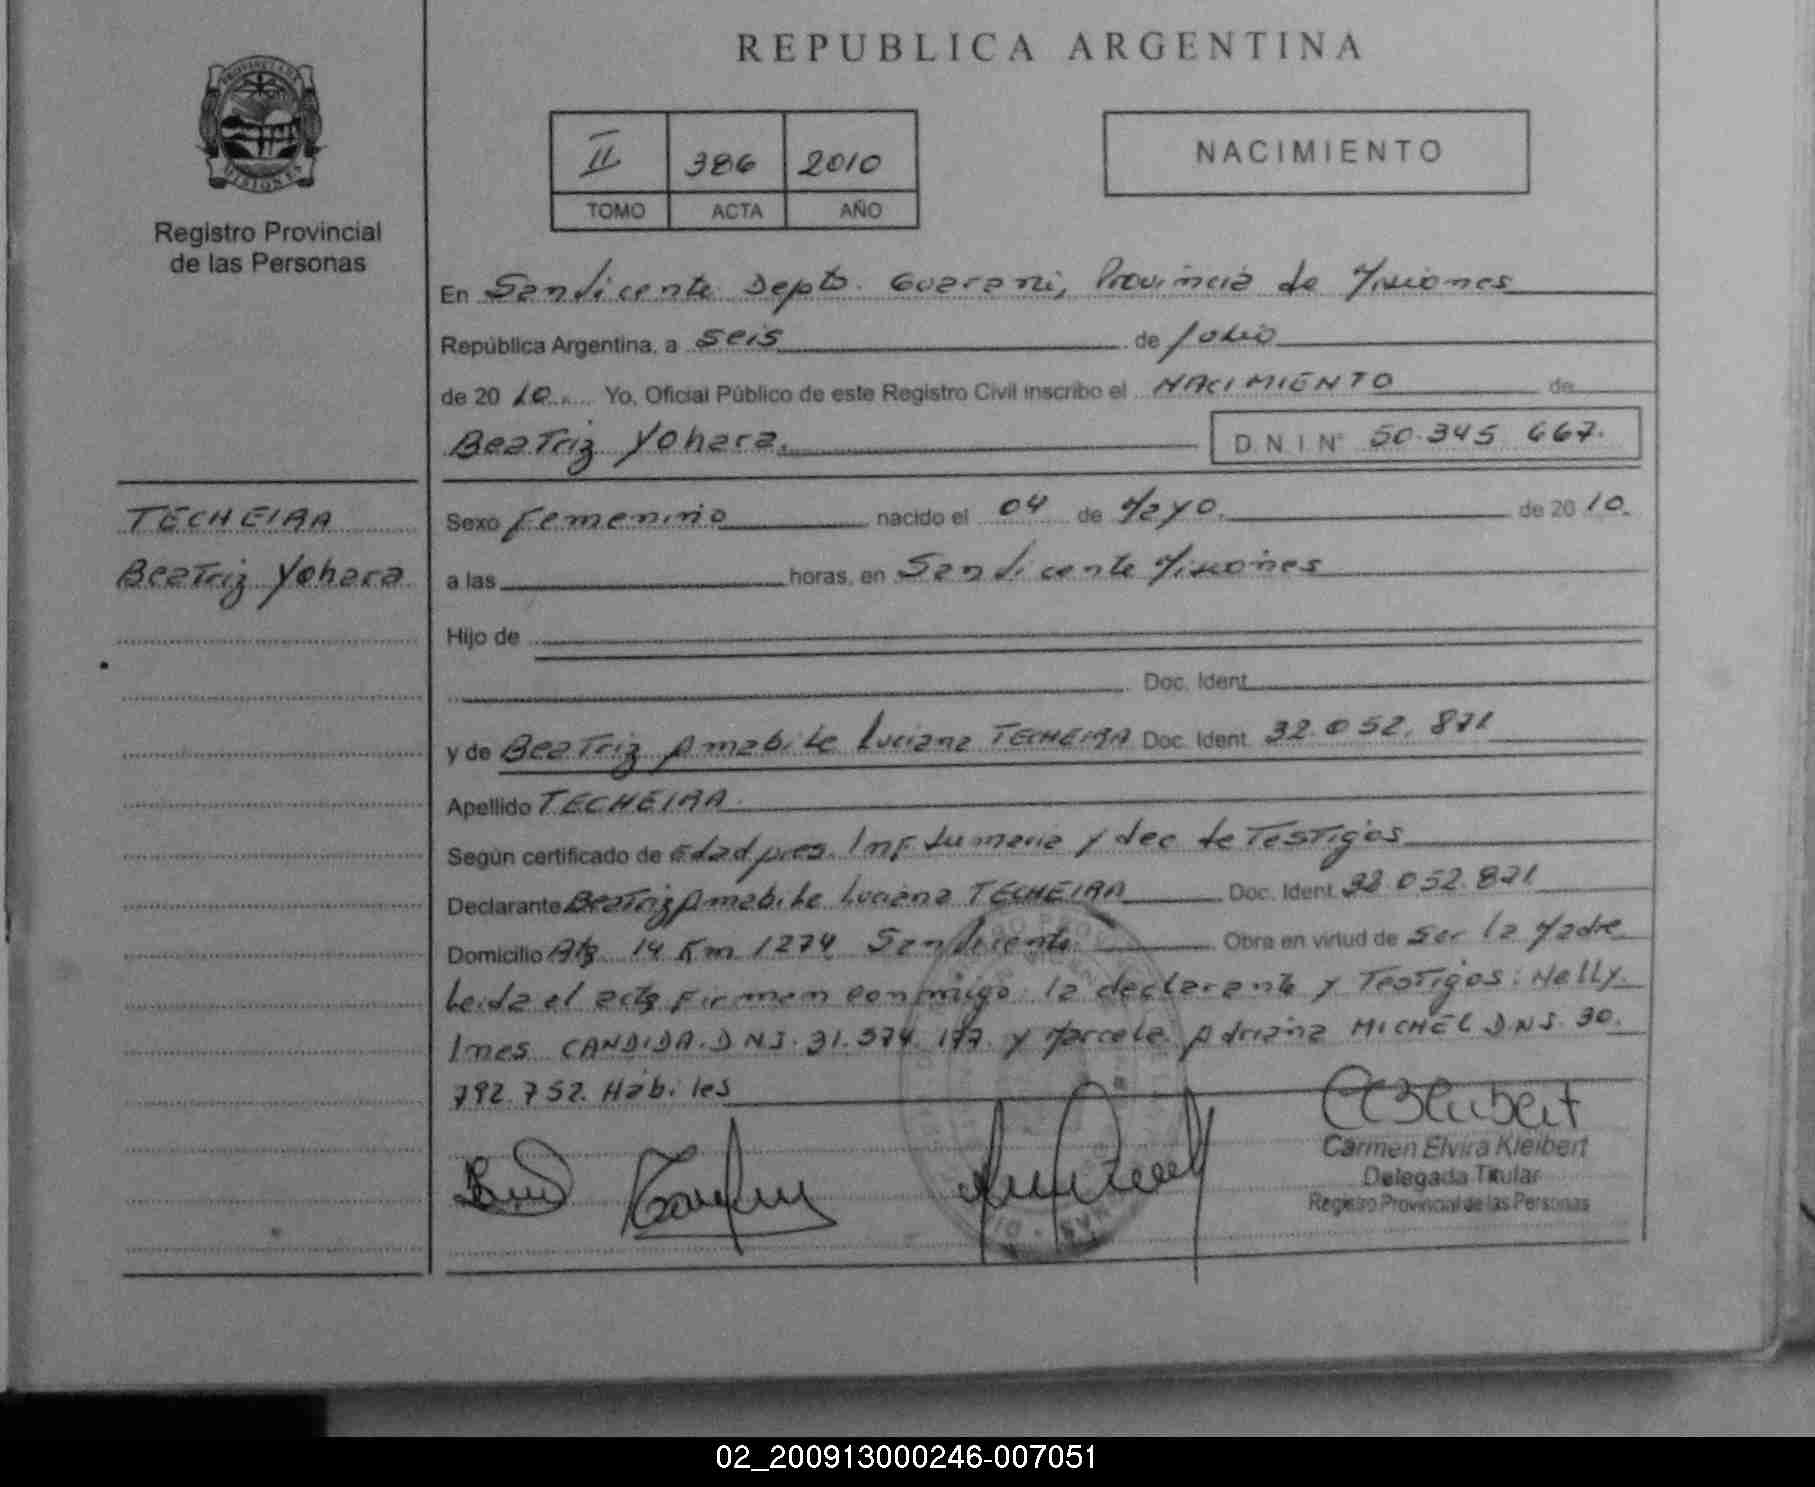 REPUBLICA ARGENTINA
PROVINCIA DE
MISIONES
Registro Provincial
de las Personas
II 386 2010
TOMO ACTA AÑO
NACIMIENTO
En San Vicente Depto. Guarani, Provincia de Misiones
República Argentina, a seis de Julio
de 20 10 Yo, Oficial Público de este Registro Civil inscribo el NACIMIENTO de
Beatriz Yohara. D.N.I Nº 50.345 667.
TECHEIRA
Beatriz Yohara
Sexo Femenino nacido el 04 de Mayo. de 20 10.
a las horas, en San Vicente Misiones
Hijo de
Doc. Ident.
y de Beatriz Amabile Luciana TECHEIRA Doc. Ident. 32.052.871
Apellido TECHEIRA.
Según certificado de Edad pres. Inf Sumaria y dec de Testigos
Declarante Beatriz Amabile Luciana TECHEIRA Doc. Ident. 32.052.871
Domicilio 14 Km 1274 San Vicente. Obra en virtud de Ser la Madre
Leida el acta Firman conmigo: la declarante y Testigos: Nelly
Ines CANDIDA. DNI. 31.574.177. y Marcela Adriana MICHEL DNI. 30.
792.752. Habiles
Carmen Elvira Kleibert
Delegada Titular
Registro Provincial de las Personas
02_200913000246-007051